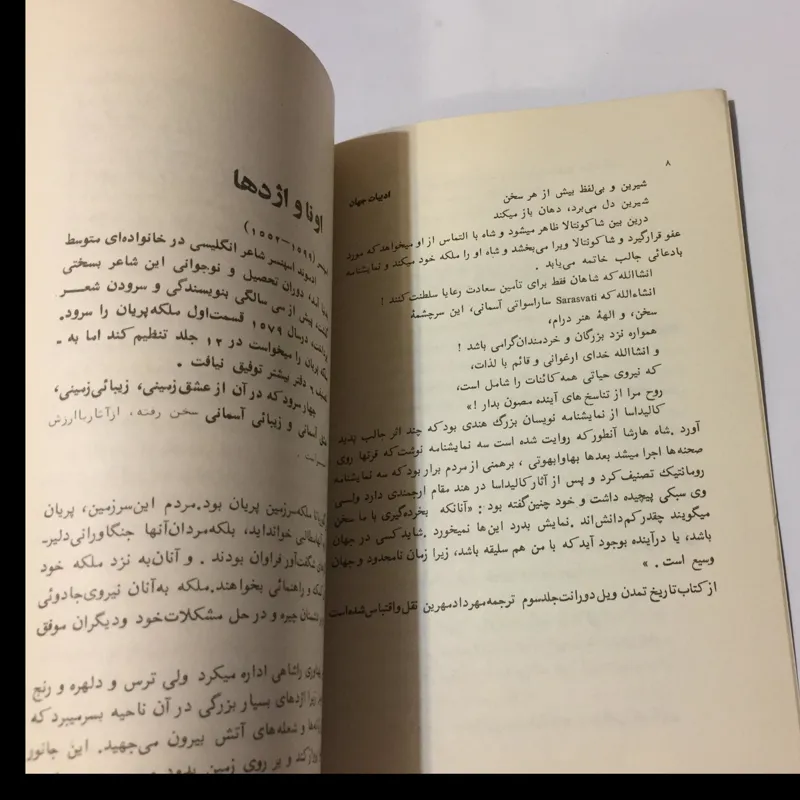 ۸
ادبیات جهان
شیرین و بی‌لفظ بیش از هر سخن
شیرین دل می‌برد، دهان باز میکند
درین بین شاکونتالا ظاهر میشود و شاه با التماس از او میخواهد که مورد
عفو قرارگیرد و شاکونتالا ویرا می‌بخشد و شاه او را ملکه خود میکند و نمایشنامه
بادعائی جالب خاتمه می‌یابد .
انشاالله که شاهان فقط برای تأمین سعادت رعایا سلطنت کنند !
انشاءالله که Sarasvati ساراسواتی آسمانی، این سرچشمهٔ
سخن، و الههٔ هنر درام،
همواره نزد بزرگان و خردمندان گرامی باشد !
و انشاالله خدای ارغوانی و قائم با لذات،
که نیروی حیاتی همه کائنات را شامل است،
روح مرا از تناسخ های آینده مصون بدار !»
کالیداسا از نمایشنامه نویسان بزرگ هندی بود که چند اثر جالب پدید
آورد .شاه هارشا آنطور که روایت شده است سه نمایشنامه نوشت که قرنها روی
صحنه‌ها اجرا میشد بعدها بهاوابهوتی ، برهمنی از مردم برار بود که سه نمایشنامه
رومانتیک تصنیف کرد و پس از آثار کالیداسا در هند مقام ارجمندی دارد ولسی
وی سبکی پیچیده داشت و خود چنین گفته بود : «آنانکه بخرده‌گیری با ما سخن
میگویند چقدر کم دانش‌اند .نمایش بدرد این‌ها نمیخورد .شاید کسی در جهان
باشد، یا درآینده بوجود آید که با من هم سلیقه باشد، زیرا زمان نامحدود و جهان
وسیع است . »
از کتاب تاریخ تمدن ویل دورانت جلد سوم ترجمه مهرداد مهرین نقل و اقتباس شده است
اونا و اژدها
(۱۵۵۲—۱۵۹۹)
ادموند اسپنسر شاعر انگلیسی در خانواده‌ای متوسط
آمد، دوران تحصیل و نوجوانی این شاعر بسختی
پیش از سی سالگی بنویسندگی و سرودن شعـــر
درسال ۱۵۷۹ قسمت‌اول ملکه‌پریان را سرود.
پریان را میخواست در ۱۲ جلد تنظیم کند اما به ـ
۶ دفتر بیشتر توفیق نیافت .
چهار سرود که در آن از عشق زمینی، زیبائی زمینی،
آسمانی و زیبائی آسمانی سخن رفته، از آثار باارزش
ملکه سرزمین پریان بود.مردم این سرزمین، پریان
خوانداید، بلکه مردان آنها جنگاورانی دلیرـ
شگفت‌آور فراوان بودند . و آنان به نزد ملکه خود
و راهنمائی بخواهند.ملکه به‌آنان نیروی جادوئی
دشمنان چیره و در حل مشکلات خود ودیگران موفق
راشاهی اداره میکرد ولی ترس و دلهره و رنج
زیرا اژدهای بسیار بزرگی در آن ناحیه بسرمیبرد که
و شعله‌های آتش بیرون می‌جهید. این جانور
و بر روی زمین